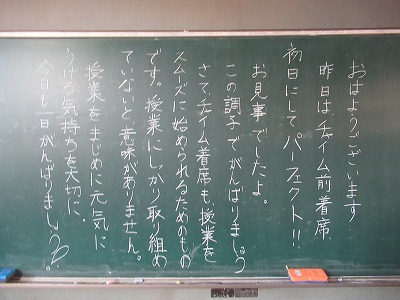 おはようございます
昨日は、チャイム前着席、
初日にしてパーフェクト!!
お見事でしたよ。
この調子でがんばりましょう
さてチャイム着席も、授業を
スムーズに始められるためのもの
です。授業にしっかり取り組め
ていないと意味がありません。
授業をまじめに元気に
うける気持ちを大切に、
今日も一日がんばりましょう。